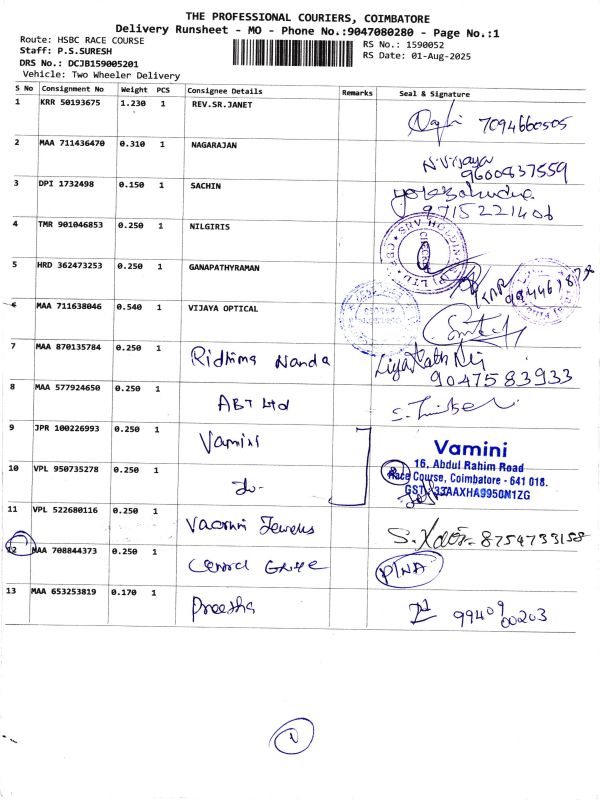 THE PROFESSIONAL COURIERS, COIMBATORE
Delivery Runsheet - MO - Phone No.:9047080280 - Page No.:1
Route: HSBC RACE COURSE
RS No.: 1590052
Staff: P.S.SURESH
RS Date: 01-Aug-2025
DRS No.: DCJB159005201
Vehicle: Two Wheeler Delivery
S No Consignment No Weight PCS Consignee Details Remarks Seal & Signature
1 KRR 50193675 1.230 1 REV.SR.JANET 7094660505
2 MAA 711436470 0.310 1 NAGARAJAN N.Vijaya
9600837559
3 DPI 1732498 0.150 1 SACHIN
9715221406
4 TMR 901046853 0.250 1 NILGIRIS
5 HRD 362473253 0.250 1 GANAPATHYRAMAN
6 MAA 711638046 0.540 1 VIJAYA OPTICAL
7 MAA 870135784 0.250 1 Ridhima Nanda
9047583933
8 MAA 577924650 0.250 1 ABT Ltd
9 JPR 100226993 0.250 1 Vamini
Vamini
16, Abdul Rahim Road
Race Course, Coimbatore - 641 018.
GST: 33AAXHA9950N1ZG
10 VPL 950735278 0.250 1
11 VPL 522680116 0.250 1 8754733158
12 MAA 708844373 0.250 1
13 MAA 653253819 0.170 1 Preesha 99409
00203
1